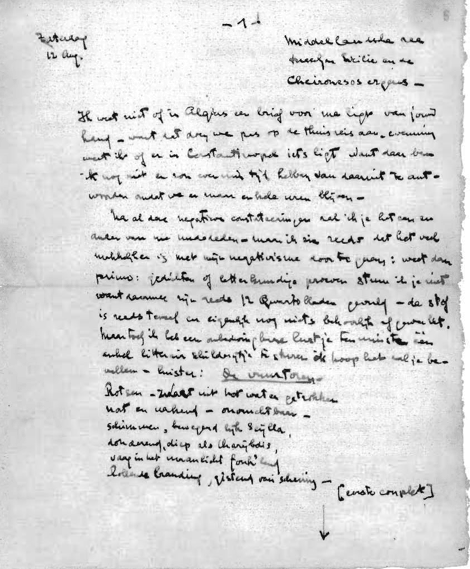 - 1 -
Zaterdag
12 Aug.
Middellandsche zee
tusschen Sicilie en de
Chersonesos ergens -
Ik weet niet of in Algiers een brief voor me ligt van jouw
hand - want dat doen we pas op de thuisreis aan, evenmin
weet ik of er in Constantinopel iets ligt want dan ben
ik nog niet en zou evenmin tijd hebben van daaruit te ant-
woorden omdat we er maar enkele uren blijven -
Na al deze negatieve constateeringen zal ik je het een en
ander van me mededeelen - maar ik zie reeds dat het veel
makkelijker is met mijn negativisme door te gaan: weet dan
primo: gedichten of letterkundige proeven stuur ik je niet
want daarmee zijn reeds 12 Quartobladen gevuld - de stof
is reeds teveel en eigenlijk nog niets behoorlijk afgewerkt.
Maar toch ik heb een onbedwingbare lust je tenminste een
enkel litterair schilderijtje te sturen ik hoop het zal je be-
vallen - luister: De vuurtoren.
Rotsen - zwart uit het water getrokken
nat en
schimmen, bewegend lijk Scylla,
donderend, diep als Charybdis,
vang in het maanlicht fonk'lend
hollende branding, gistend van schuim -
[eerste couplet]